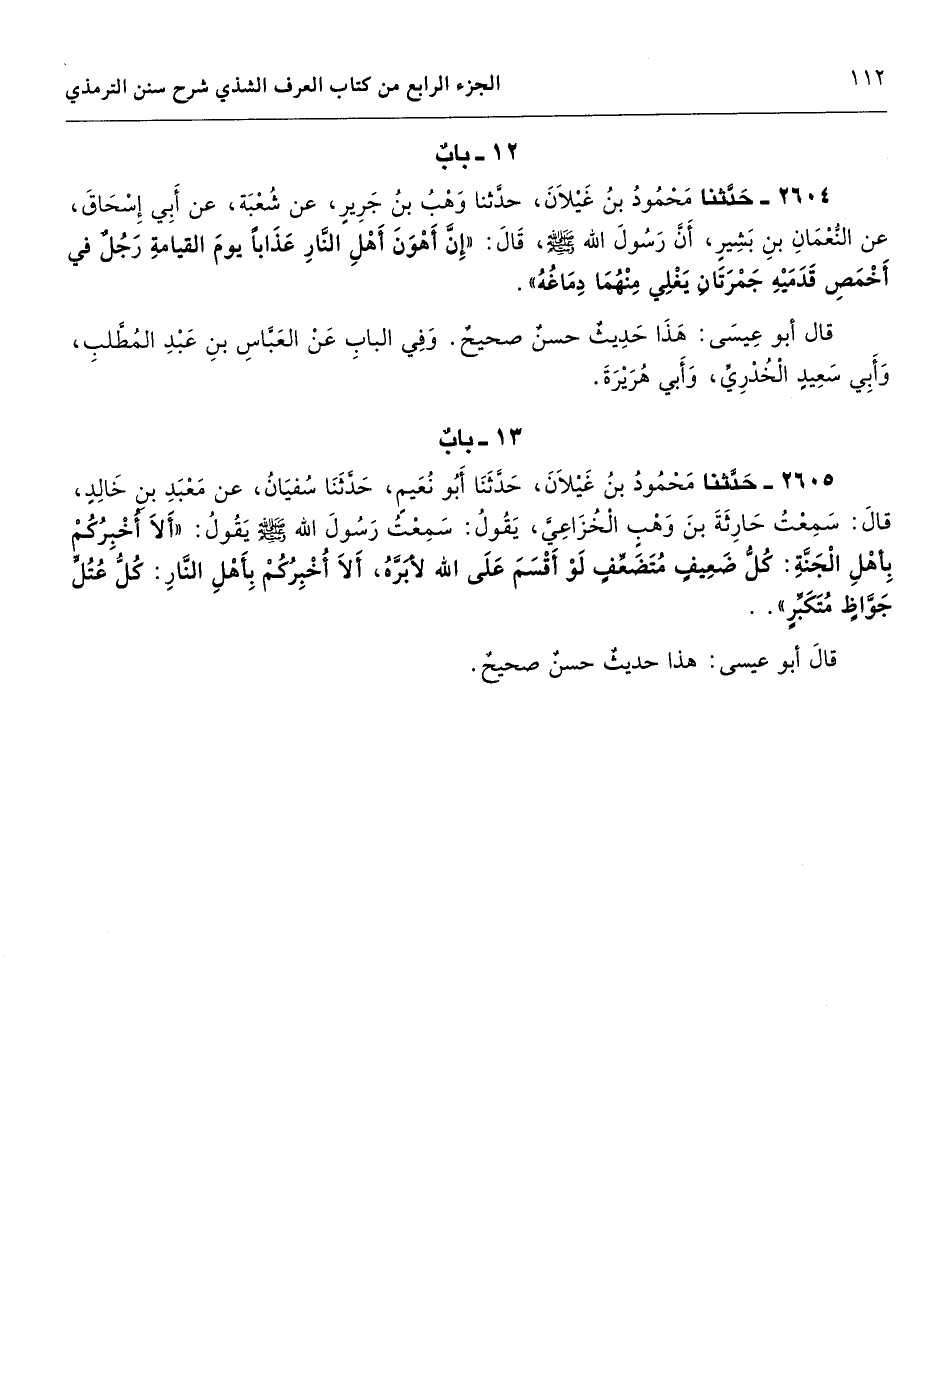 ١١٢ الجزء الرابع من كتاب العرف الشذي شرح سنن الترمذي
١٢ ـ بابٌ
٢٦٠٤ ـ حَدَّثنا مَحْمُودُ بنُ غَيْلاَنَ، حدَّثنا وَهْبُ بنُ جَرِيرٍ، عن شُعْبَة، عن أَبِي إِسْحَاقَ،
عن النُّعْمَانِ بنِ بَشِيرٍ، أَنَّ رَسُولَ الله ﷺ، قَالَ: «إِنَّ أَهْوَنَ أَهْلِ النَّارِ عَذَاباً يومَ القيامةِ رَجُلٌ في
أَخْمَصِ قَدَمَيْهِ جَمْرَتَانِ يَغْلِي مِنْهُمَا دِمَاغُهُ».
قال أبو عِيسَى: هَذَا حَدِيثٌ حسنٌ صحيحٌ. وَفِي البابِ عَنْ العَبَّاسِ بنِ عَبْدِ المُطَّلبِ،
وَأَبِي سَعِيدٍ الْخُدْرِيِّ، وَأَبي هُرَيْرَةَ.
١٣ ـ بابٌ
٢٦٠٥ ـ حَدَّثَنا مَحْمُودُ بنُ غَيْلاَنَ، حَدَّثَنَا أَبُو نُعَيمٍ، حَدَّثَنَا سُفيَانُ، عن مَعْبَدِ بنِ خَالِدٍ،
قالَ: سَمِعْتُ حَارِثَةَ بنَ وَهْبٍ الْخُزَاعِيَّ، يَقُولُ: سَمِعْتُ رَسُولَ الله ﷺ يَقُولُ: «أَلاَ أُخْبِرُكُمْ
بِأَهْلِ الْجَنَّةِ: كُلُّ ضَعِيفٍ مُتَضَعِّفٍ لَوْ أَقْسَمَ عَلَى الله لأبَرَّهُ، أَلاَ أُخْبِرُكُمْ بِأَهْلِ النَّارِ: كُلُّ عُتُلٍّ
جَوَّاظٍ مُتَكَبِّرٍ». .
قالَ أبو عيسى: هذا حديثٌ حسنٌ صحيحٌ.